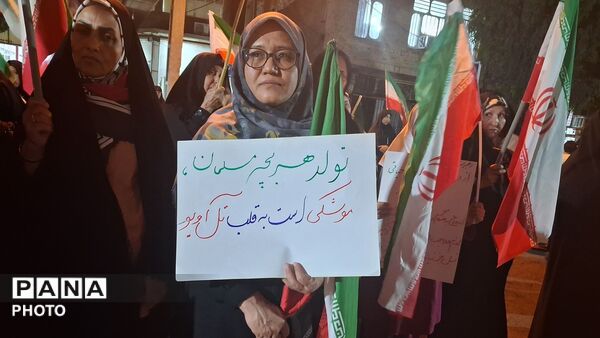 تولد هر بچه مسلمان،
موشکی است به قلب تل آویو
PANA
PHOTO